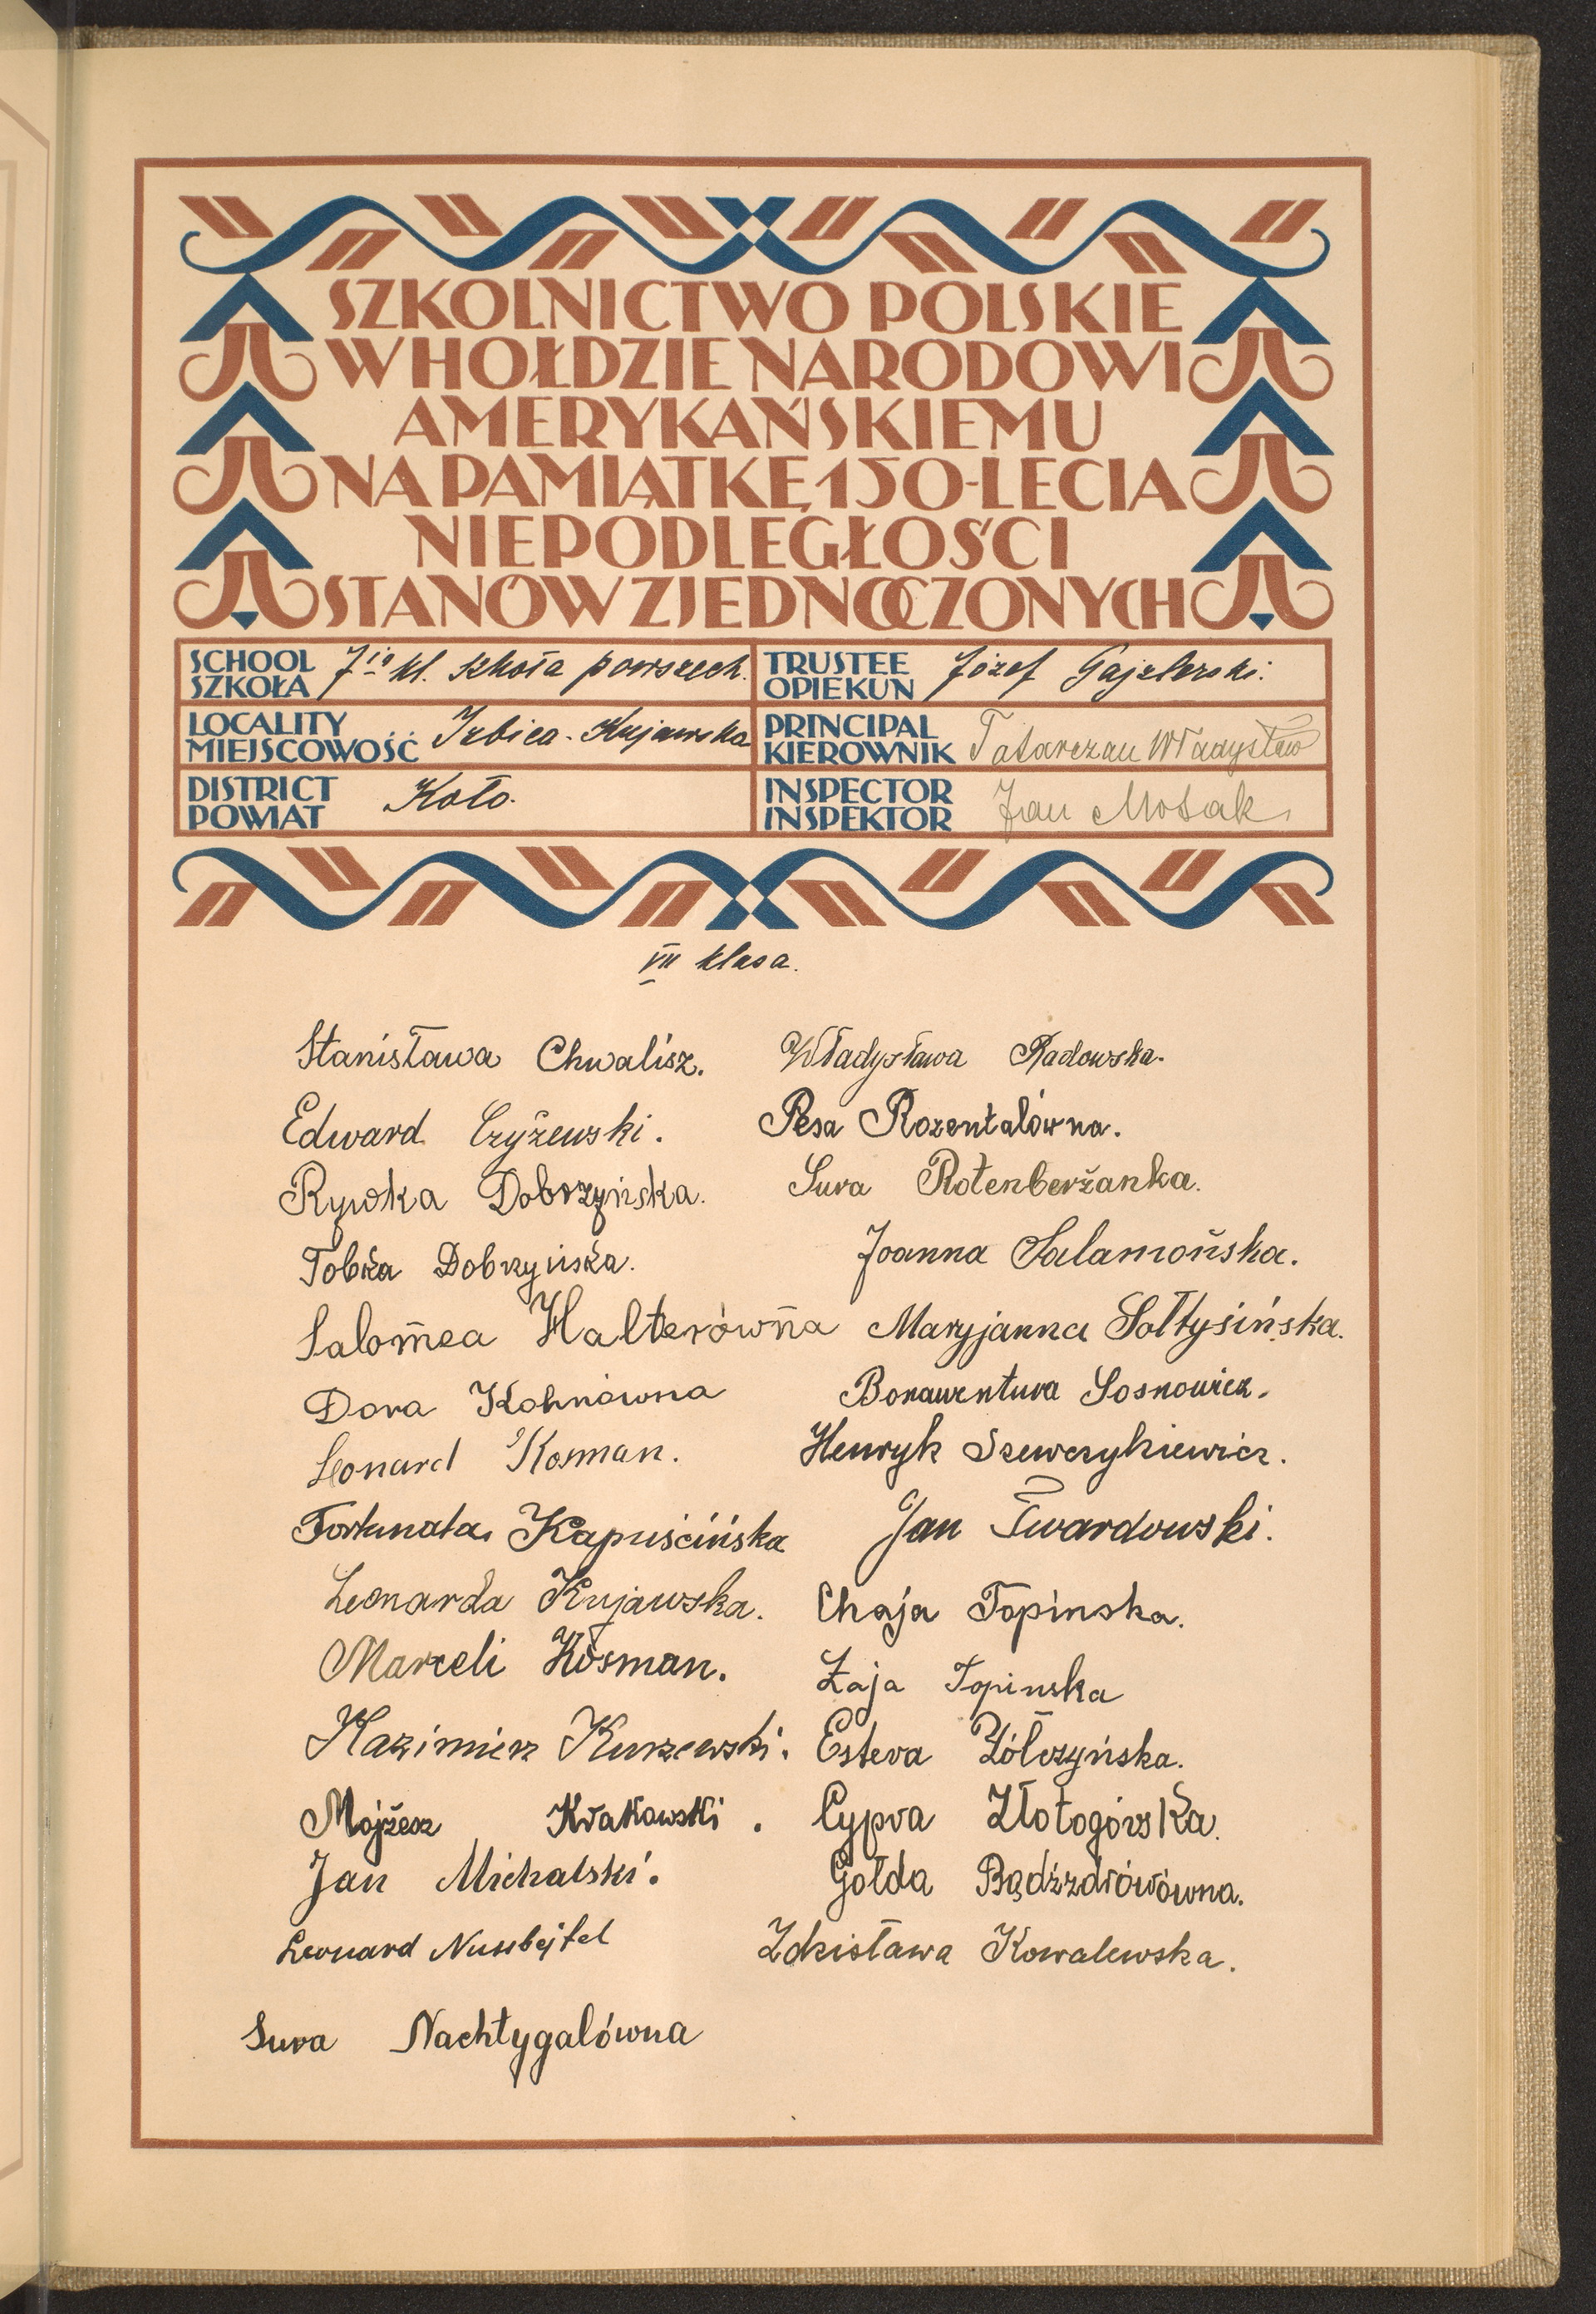 SZKOLNICTWO POLSKIE
W HOŁDZIE NARODOWI
AMERYKAŃSKIEMU
NA PAMIĄTKĘ 150-LECIA
NIEPODLEGŁOŚCI
STANÓW ZJEDNOCZONYCH
SCHOOL
SZKOŁA
7io kl. szkoła powszech.
TRUSTEE
OPIEKUN
Józef Gajzlerski.
LOCALITY
MIEJSCOWOŚĆ
Izbica-Kujawska
PRINCIPAL
KIEROWNIK
Tatarczau Władysław
DISTRICT
POWIAT
Koło.
INSPECTOR
INSPEKTOR
Jan
VII klasa.
Stanisława Chwalisz.
Edward Czyżewski.
Rywka Dobrzyńska.
Tobka Dobrzyńska.
Salomea Halterówna
Dora Kohnówna
Leonard Kosman.
Fortunata Kapuścińska
Leonarda Kujawska.
Marceli Kosman.
Kazimierz Kurzewski.
Mojżesz Krakowski.
Jan Michalski.
Leonard Nussbejtel
Sura Nachtygalówna
Władysława Radowska.
Pesa Rozentalówna.
Sura Rotenberżanka.
Joanna Salamońska.
Maryjanna Sołtysińska.
Bonawentura Sosnowicz.
Henryk Szewczykiewicz.
Jan Twardowski.
Chaja Topinska.
Łaja Topinska
Estera Żółczyńska.
Cypra Złotogórska.
Gołda Bądźzdrówówna.
Zdzisława Kowalewska.